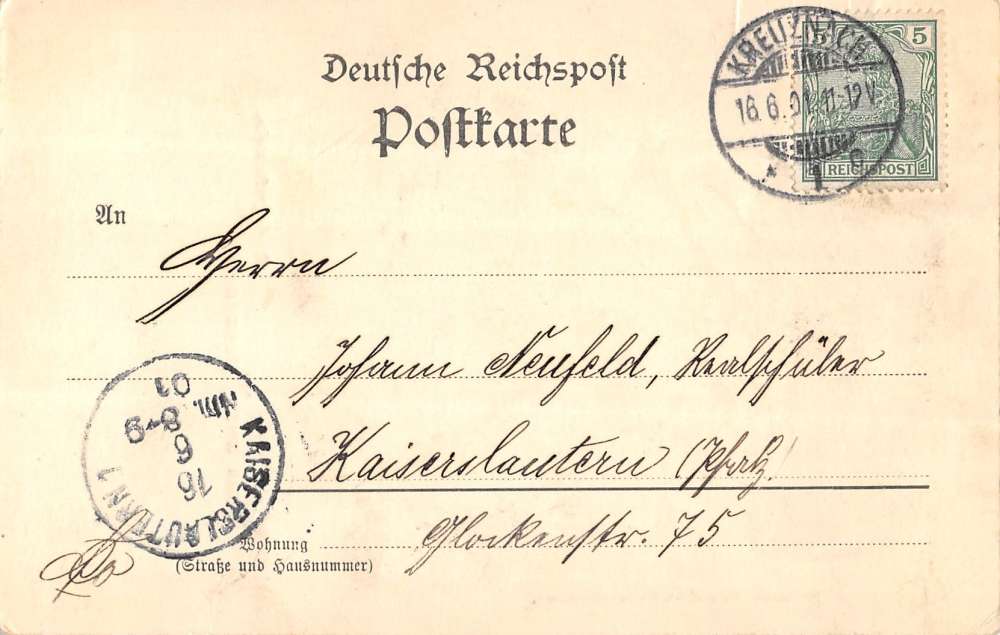 Deutsche Reichspost
Postkarte
5 5
REICHSPOST
KREUZNACH
16.6.01.11-12V.
* 1 c
An
Herrn
Johann Neufeld, Realschüler
Kaiserslautern (Pfalz)
Glockenstr. 75
Wohnung
(Straße und Hausnummer)
KAISERSLAUTERN 1
16
6
8-9
Nm.
01